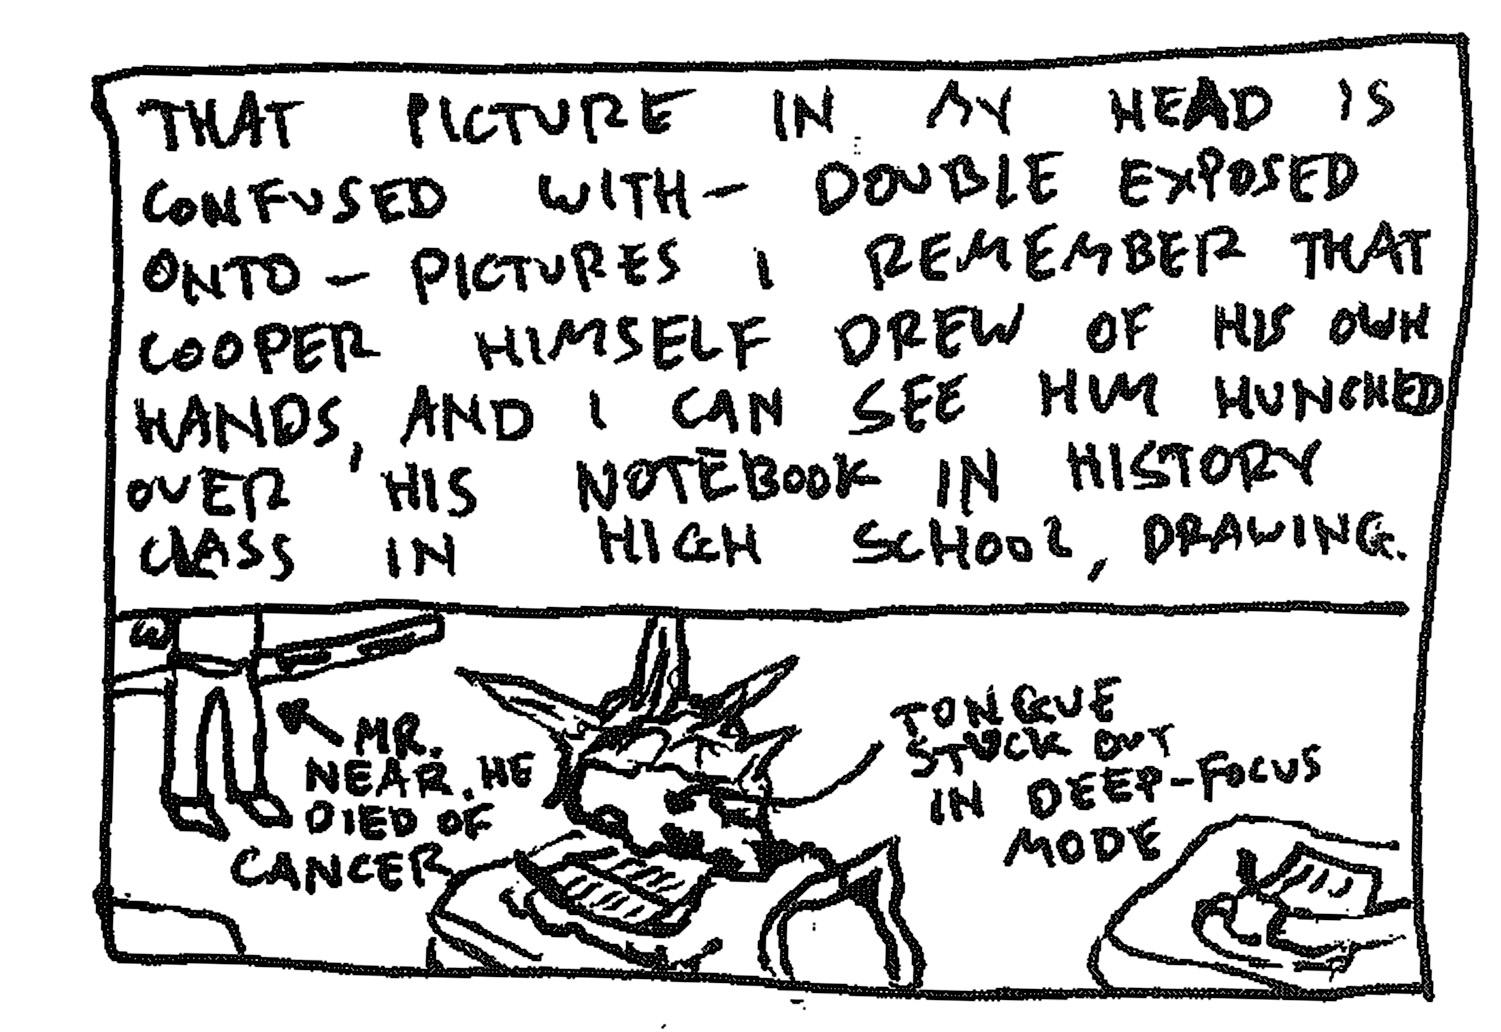 THAT PICTURE IN MY HEAD IS
CONFUSED WITH— DOUBLE EXPOSED
ONTO— PICTURES I REMEMBER THAT
COOPER HIMSELF DREW OF HIS OWN
HANDS, AND I CAN SEE HIM HUNCHED
OVER HIS NOTEBOOK IN HISTORY
CLASS IN HIGH SCHOOL, DRAWING.
MR.
NEAR. HE
DIED OF
CANCER
TONGUE
STUCK OUT
IN DEEP-FOCUS
MODE